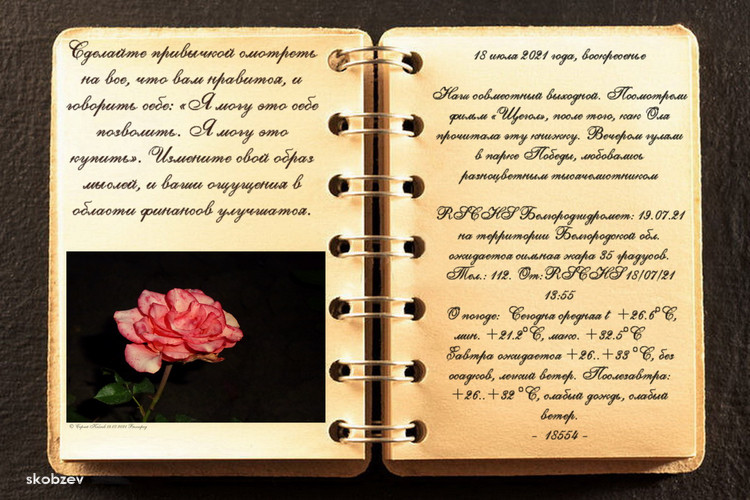 Сделайте привычкой смотреть
на все, что вам нравится, и
говорить себе: «Я могу это себе
позволить. Я могу это
купить». Измените свой образ
мыслей, и ваши ощущения в
области финансов улучшатся.
18 июля 2021 года, воскресенье
Наш совместный выходной. Посмотрели
фильм «Щегол», после того, как Оля
прочитала эту книжку. Вечером гуляли
в парке Победы, любовались
разноцветным тысячелистником
RSCHS Белгородгидромет: 19.07.21
на территории Белгородской обл.
ожидается сильная жара 35 градусов.
Тел.: 112. От: RSCHS 18/07/21
13:55
О погоде: Сегодня средняя t +26.6°C,
мин. +21.2°C, макс. +32.5°C
Завтра ожидается +26..+33 °C, без
осадков, легкий ветер. Послезавтра:
+26..+32 °C, слабый дождь, слабый
ветер.
- 18554 -
skobzev